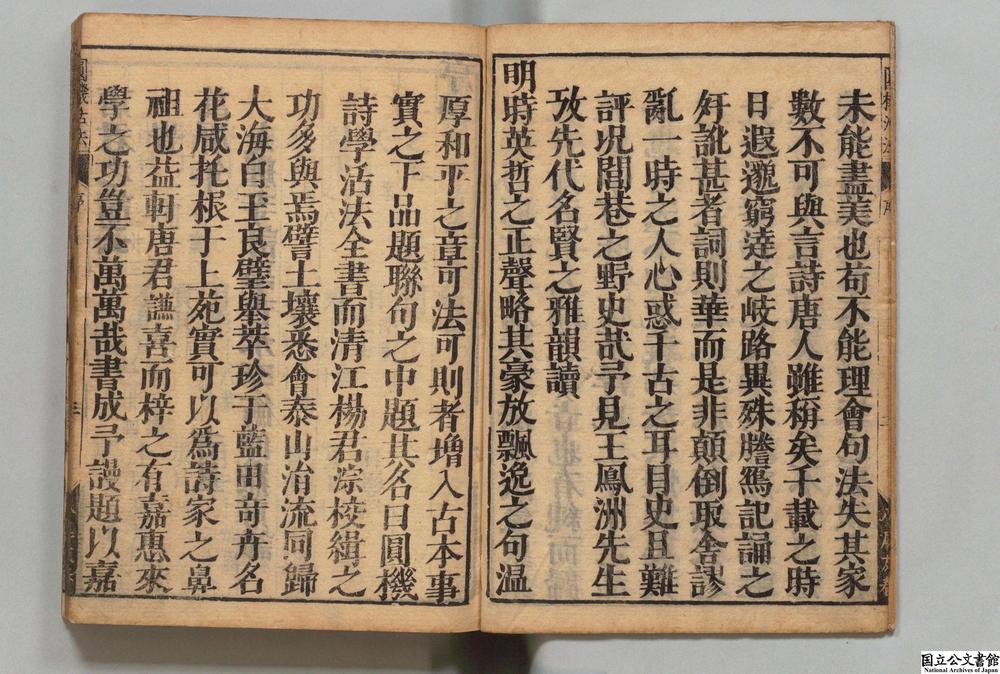 未能盡美也苟不能理會句法失其家
數不可與言詩唐人雖稱矣千載之時
日遐邈窮達之岐路異殊謄寫記誦之
好訛甚者詞則華而是非顛倒取舍謬
亂一時之人心惑千古之耳目史且難
評况閭巷之野史哉予見王鳳洲先生
攷先代名賢之雅韻讀
明時英哲之正聲略其豪放飄逸之句温
厚和平之章可法可則者增入古本事
實之下品題聯句之中題其名曰圓機
詩學活法全書而清江楊君淙校緝之
功多與焉譬土壤悉會泰山涓流同歸
大海白玉良璧舉萃珍于藍田奇卉名
花咸托根于上苑實可以爲詩家之鼻
祖也益軒唐君謙喜而梓之有嘉惠來
學之功豈不萬萬哉書成予謾題以嘉
序
三
国立公文書館
National Archives of Japan